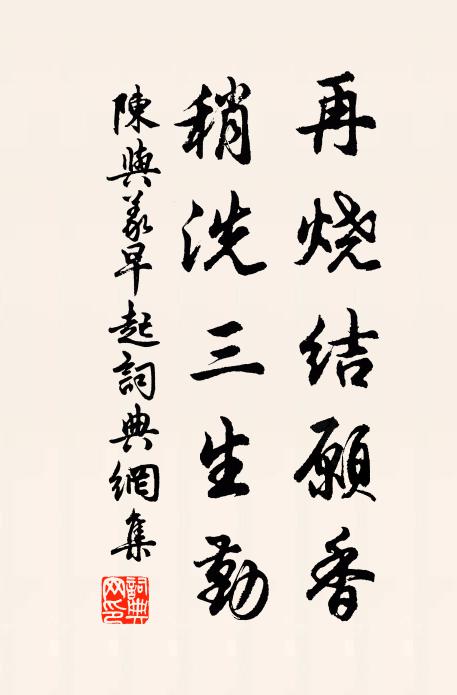 再烧结願香
稍洗三生勤
陳與義早起詞典網集
詞典网印